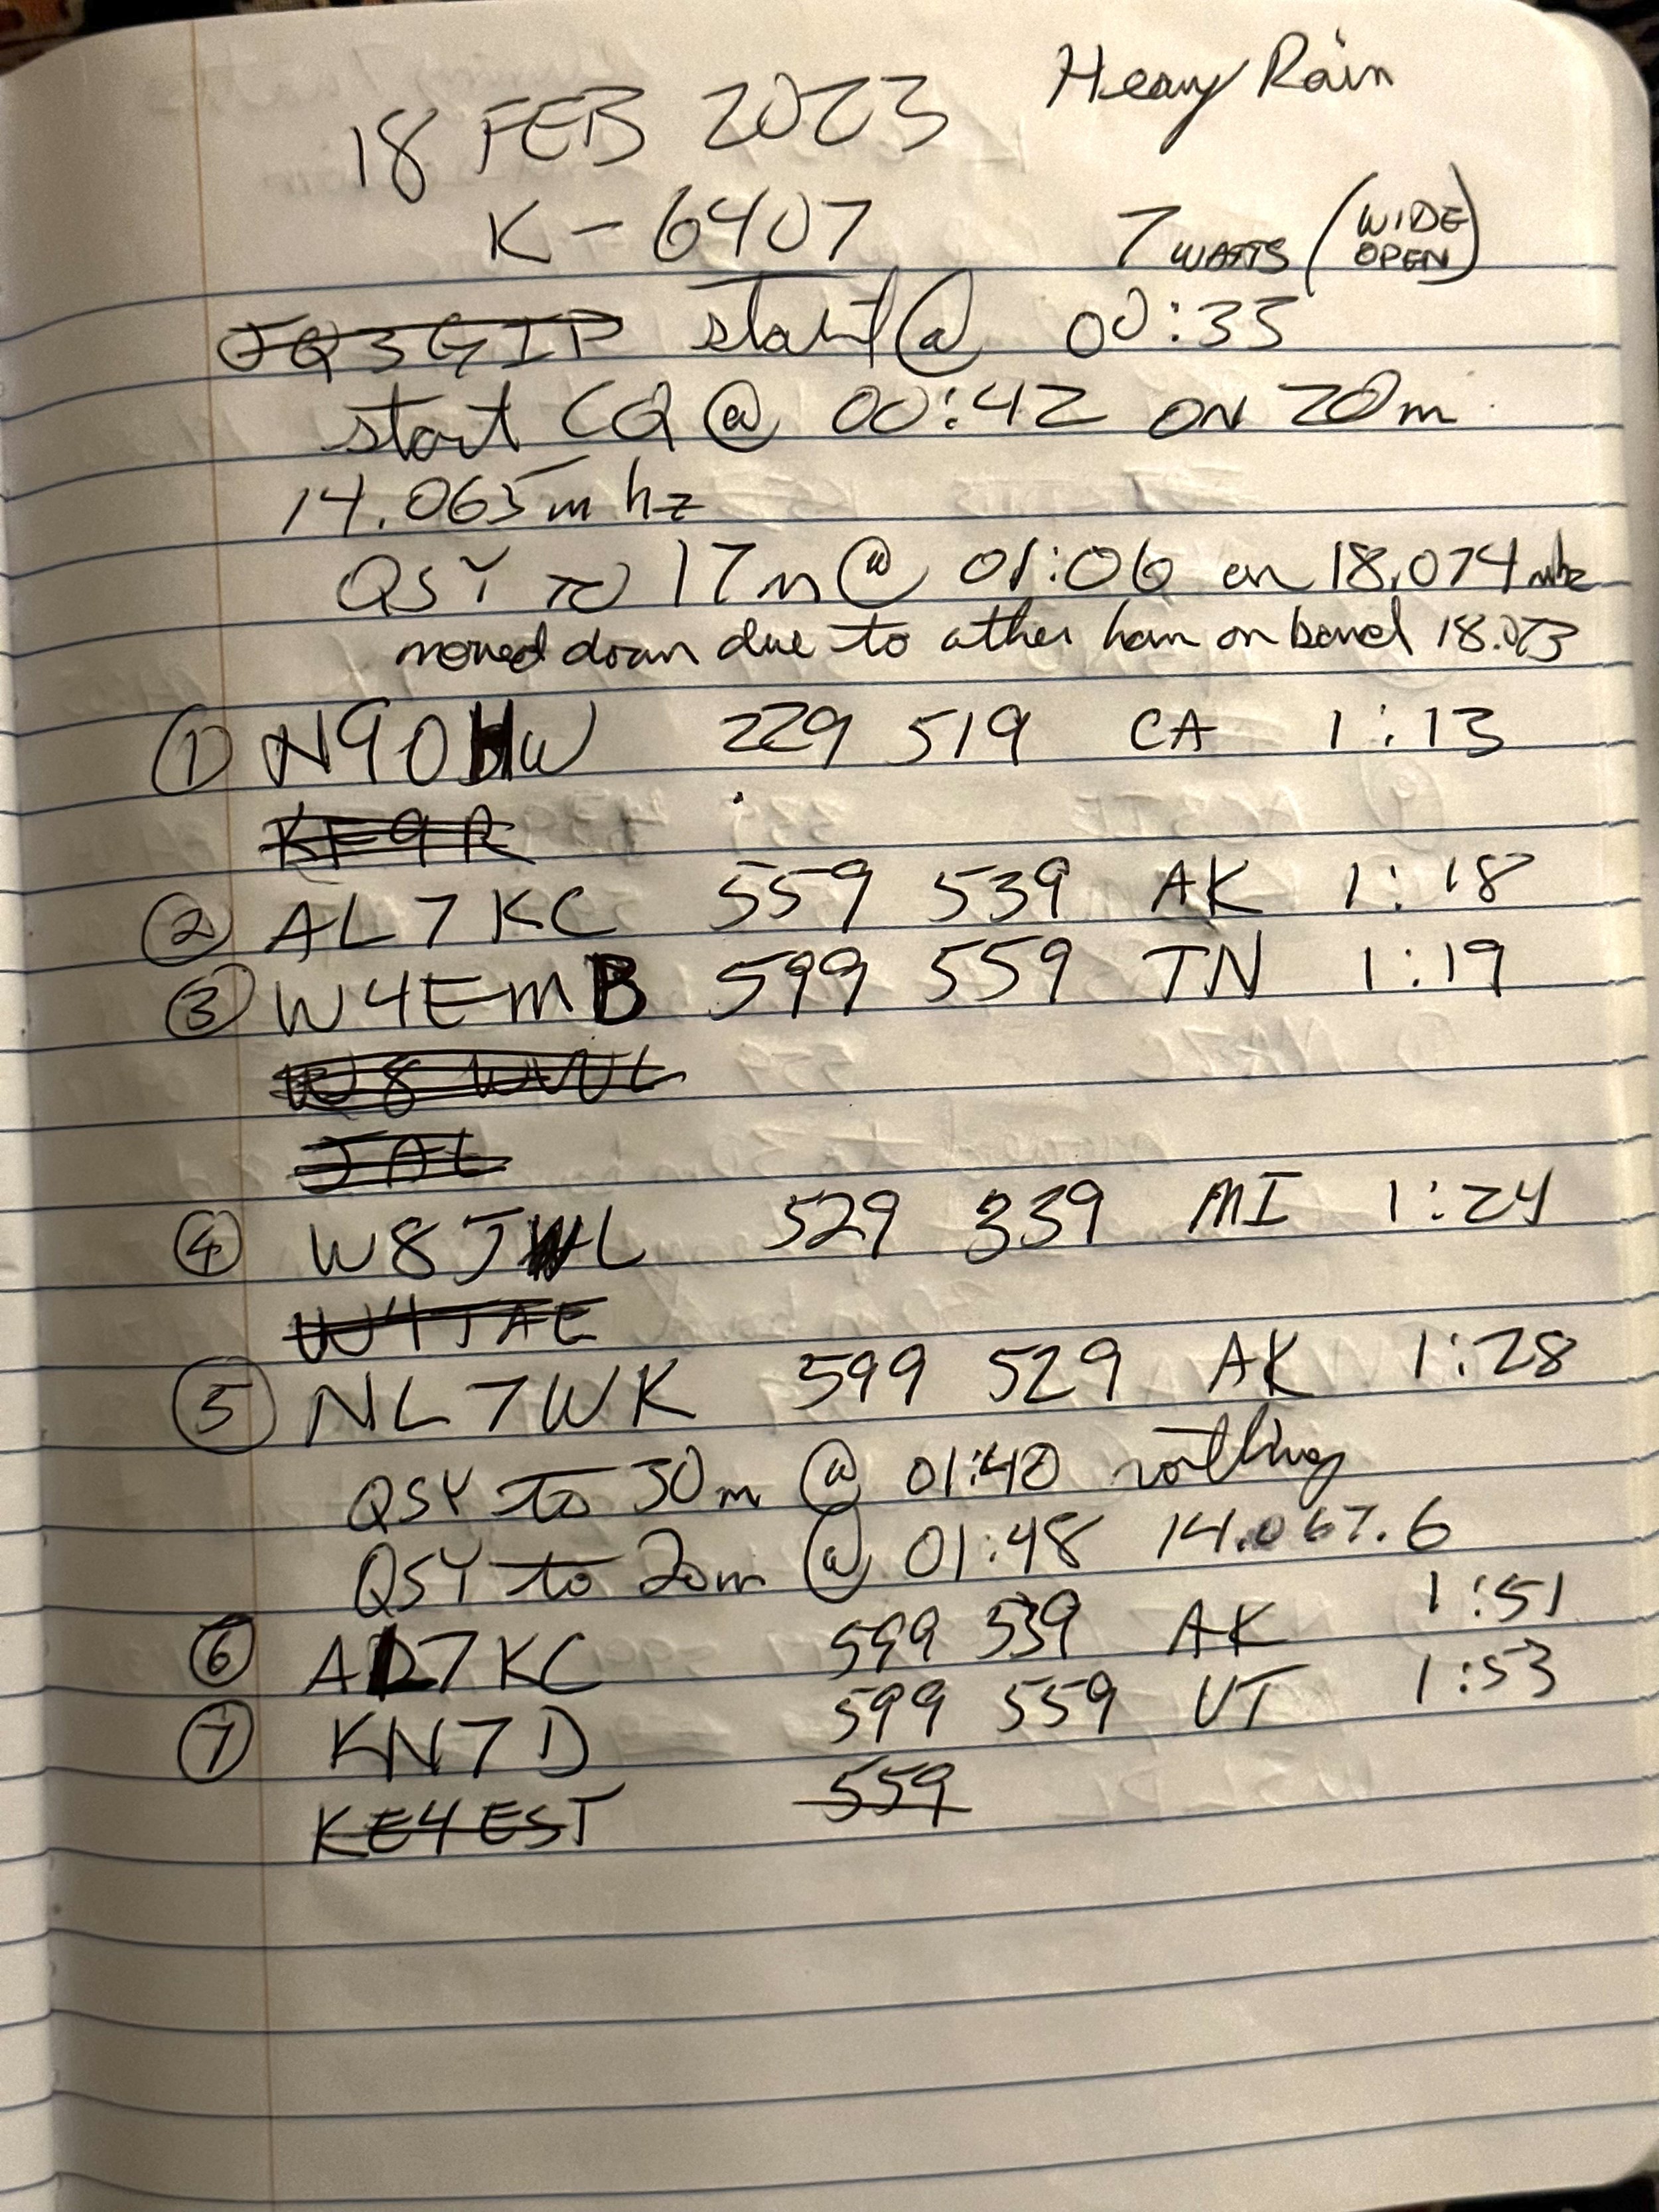 18 FEB 2023 Heavy Rain
K-6407 7 WATTS (WIDE OPEN)
JQ3GIP start @ 00:35
start CQ @ 00:42 ON 20m
14.065mhz
QSY to 17m @ 01:06 on 18.074mhz
moved down due to other ham on band 18.073
① N9OHW 229 519 CA 1:13
KF9R
② AL7KC 559 539 AK 1:18
③ W4EMB 599 559 TN 1:19
W8
JAL
④ W8JWL 529 339 MI 1:24
W4JAE
⑤ NL7WK 599 529 AK 1:28
QSY to 30m @ 01:40 nothing
QSY to 20m @ 01:48 14.067.6
⑥ AL7KC 599 539 AK 1:51
⑦ KN7D 599 559 UT 1:53
KE4EST 559